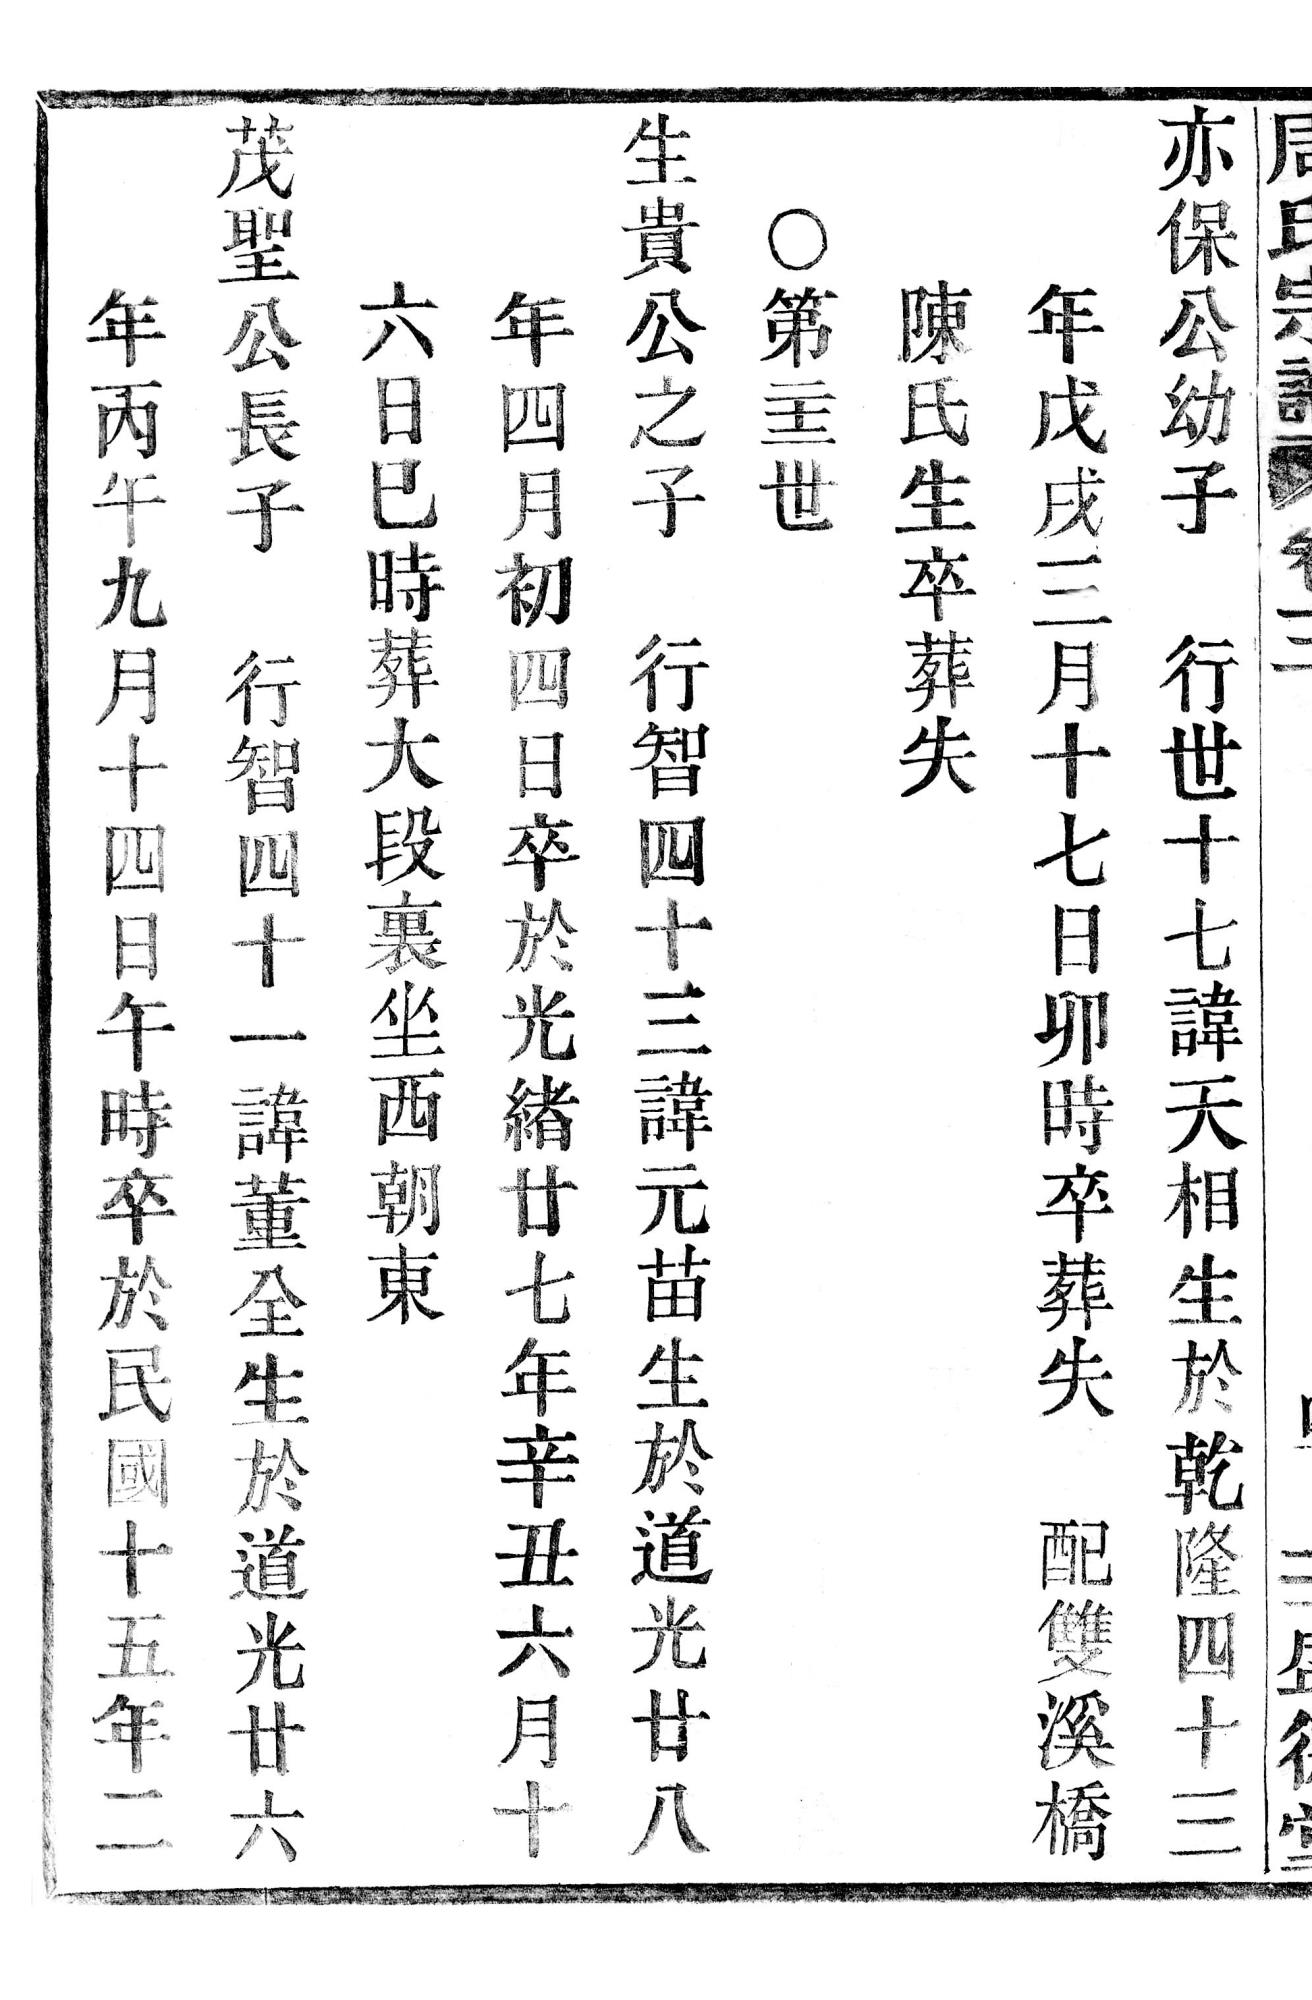 周氏宗譜 卷三 盛德堂
亦保公幼子 行世十七諱天相生於乾隆四十三
年戊戌三月十七日卯時卒葬失 配雙溪橋
陳氏生卒葬失
○第世
生貴公之子 行智四十三諱元苗生於道光廿八
年四月初四日卒於光緒廿七年辛丑六月十
六日巳時葬大段裏坐西朝東
茂聖公長子 行智四十一諱董全生於道光廿六
年丙午九月十四日午時卒於民國十五年二